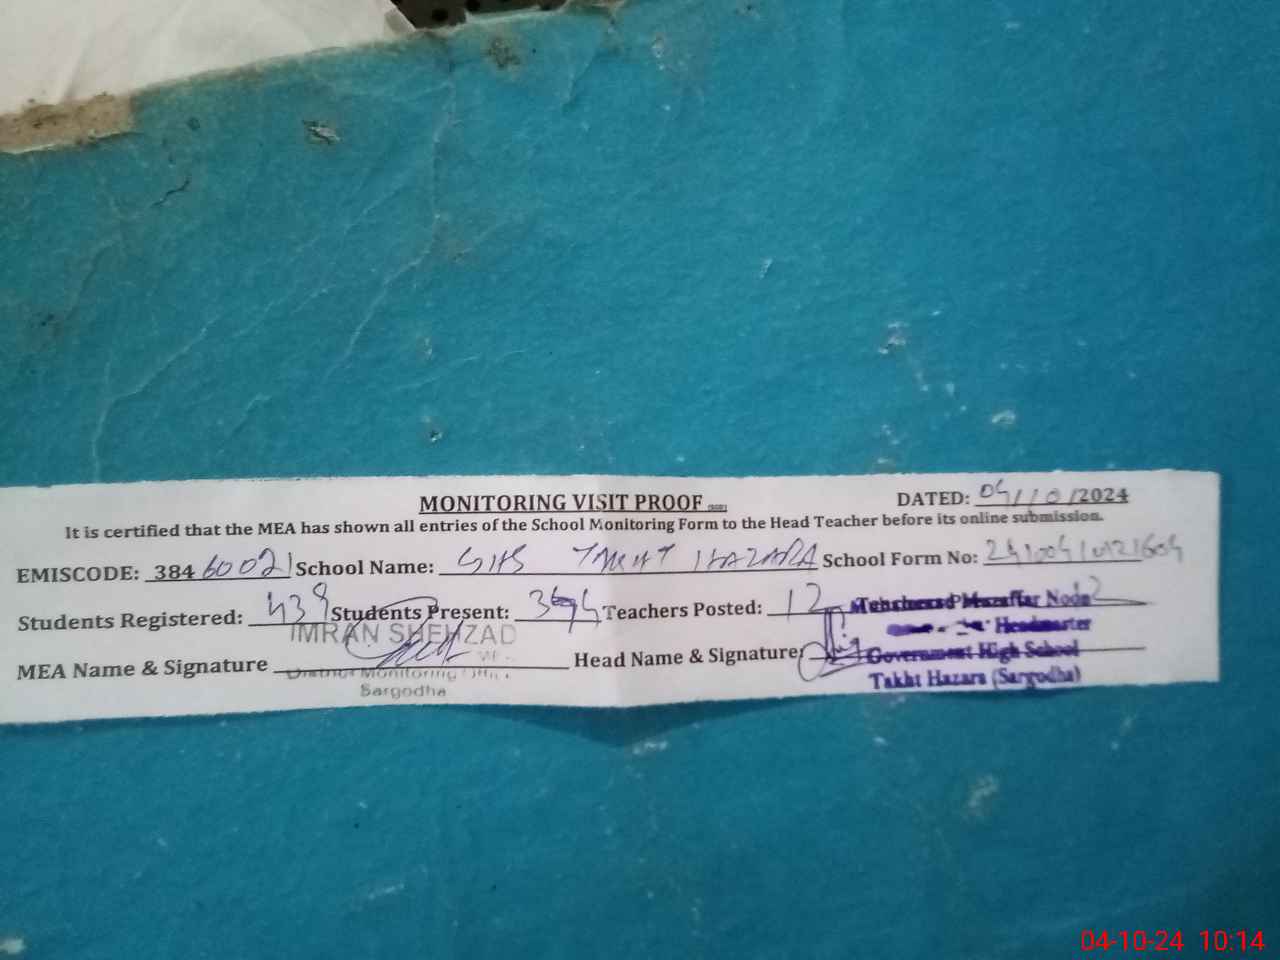 MONITORING VISIT PROOF
DATED: 04/10/2024
It is certified that the MEA has shown all entries of the School Monitoring Form to the Head Teacher before its online submission.
EMISCODE: 38460021 School Name: GHS TAKHT HAZARA School Form No:
Students Registered: 439 Students Present: Teachers Posted: 12
IMRAN SHEHZAD
MEA Name & Signature Head Name & Signature:
District Monitoring
Sargodha
Muzaffar
Headmaster
Government High School
Takht Hazara (Sargodha)
04-10-24 10:14